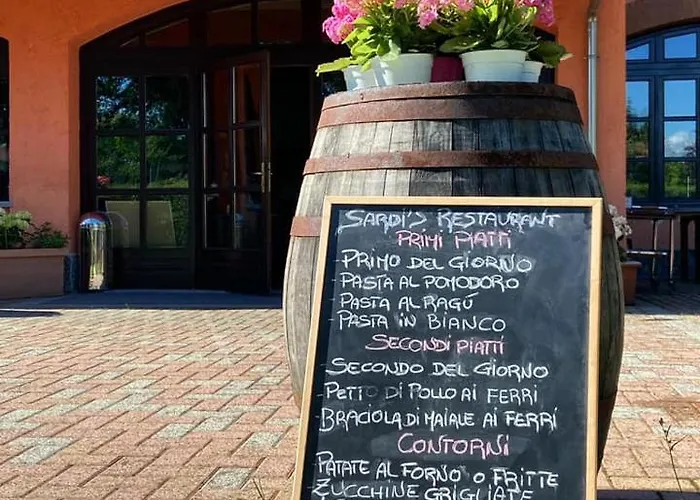 SARDI'S RESTAURANT
PRIMI PIATTI
- PRIMO DEL GIORNO
- PASTA AL POMODORO
- PASTA AL RAGÚ
- PASTA IN BIANCO
SECONDI PIATTI
- SECONDO DEL GIORNO
- PETTO DI POLLO AI FERRI
- BRACIOLA DI MAIALE AI FERRI
CONTORNI
- PATATE AL FORNO O FRITTE
- ZUCCHINE GRIGLIATE